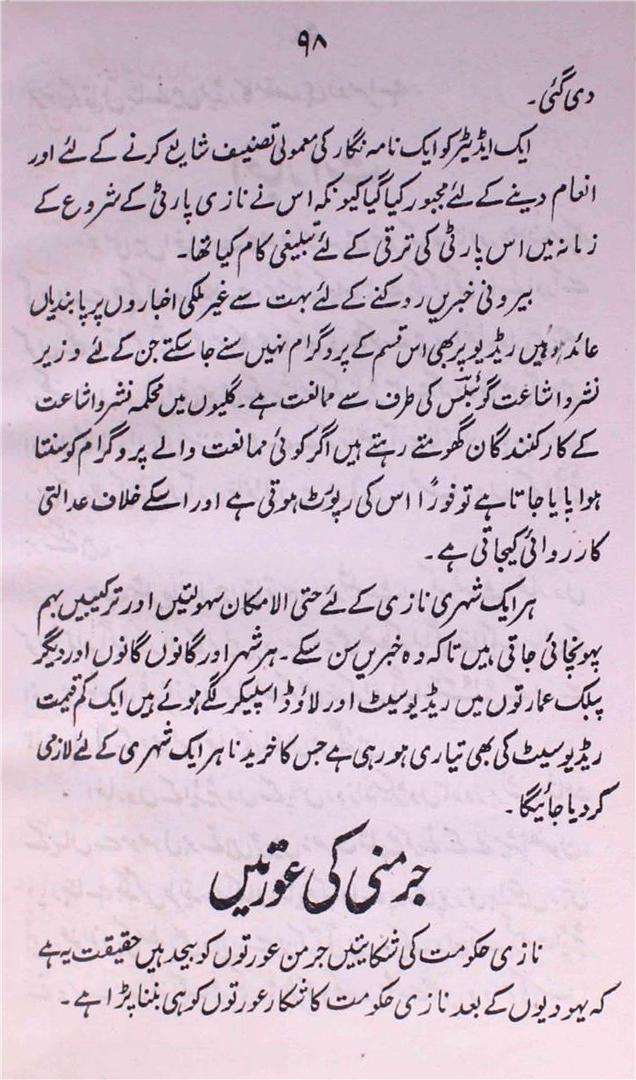 ۹۸
دی گئی۔
ایک ایڈیٹر کو ایک نامہ نگار کی معمولی تصنیف شایع کرنے کے لئے اور
انعام دینے کے لئے مجبور کیا گیا کیونکہ اس نے نازی پارٹی کے شروع کے
زمانہ میں اس پارٹی کی ترقی کے لئے تبلیغی کام کیا تھا۔
بیرونی خبریں روکنے کے لئے بہت سے غیر ملکی اخباروں پر پابندیاں
عائد ہوئیں ریڈیو پر بھی اس قسم کے پروگرام نہیں سنے جا سکتے جن کے لئے وزیر
نشر و اشاعت گوئبلس کی طرف سے ممانعت ہے۔ گلیوں میں محکمہ نشر و اشاعت
کے کارکنندگان گھومتے رہتے ہیں اگر کوئی ممانعت والے پروگرام کو سنتا
ہوا پایا جاتا ہے تو فوراً اس کی رپوٹ ہوتی ہے اور اسکے خلاف عدالتی
کارروائی کیجاتی ہے۔
ہر ایک شہری نازی کے لئے حتی الامکان سہولتیں اور ترکیبیں بہم
پہونچائی جاتی ہیں تاکہ وہ خبریں سن سکے۔ ہر شہر اور گانوں گانوں اور دیگر
پبلک عمارتوں میں ریڈیو سیٹ اور لاؤڈ اسپیکر لگے ہوئے ہیں ایک کم قیمت
ریڈیو سیٹ کی بھی تیاری ہو رہی ہے جس کا خریدنا ہر ایک شہری کے لئے لازمی
کر دیا جائیگا۔
جرمنی کی عورتیں
نازی حکومت کی شکایتیں جرمن عورتوں کو بیحد ہیں حقیقت یہ ہے
کہ یہودیوں کے بعد نازی حکومت کا شکار عورتوں کو ہی بننا پڑا ہے۔